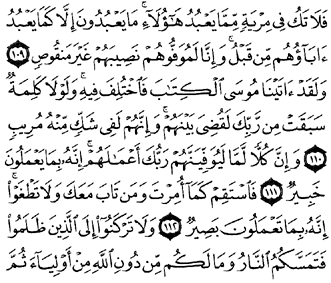 فَلَا تَكُ فِى مِرْيَةٍ مِّمَّا يَعْبُدُ هَٰٓؤُلَآءِ ۚ مَا يَعْبُدُونَ إِلَّا كَمَا يَعْبُدُ
ءَابَآؤُهُم مِّن قَبْلُ ۚ وَإِنَّا لَمُوَفُّوهُمْ نَصِيبَهُمْ غَيْرَ مَنقُوصٍ ١٠٩
وَلَقَدْ ءَاتَيْنَا مُوسَى ٱلْكِتَٰبَ فَٱخْتُلِفَ فِيهِ ۚ وَلَوْلَا كَلِمَةٌ
سَبَقَتْ مِن رَّبِّكَ لَقُضِىَ بَيْنَهُمْ ۚ وَإِنَّهُمْ لَفِى شَكٍّ مِّنْهُ مُرِيبٍ
١١٠ وَإِنَّ كُلًّا لَّمَّا لَيُوَفِّيَنَّهُمْ رَبُّكَ أَعْمَٰلَهُمْ ۚ إِنَّهُۥ بِمَا يَعْمَلُونَ
خَبِيرٌ ١١١ فَٱسْتَقِمْ كَمَآ أُمِرْتَ وَمَن تَابَ مَعَكَ وَلَا تَطْغَوْا۟ ۚ
إِنَّهُۥ بِمَا تَعْمَلُونَ بَصِيرٌ ١١٢ وَلَا تَرْكَنُوٓا۟ إِلَى ٱلَّذِينَ ظَلَمُوا۟
فَتَمَسَّكُمُ ٱلنَّارُ وَمَا لَكُم مِّن دُونِ ٱللَّهِ مِنْ أَوْلِيَآءَ ثُمَّ